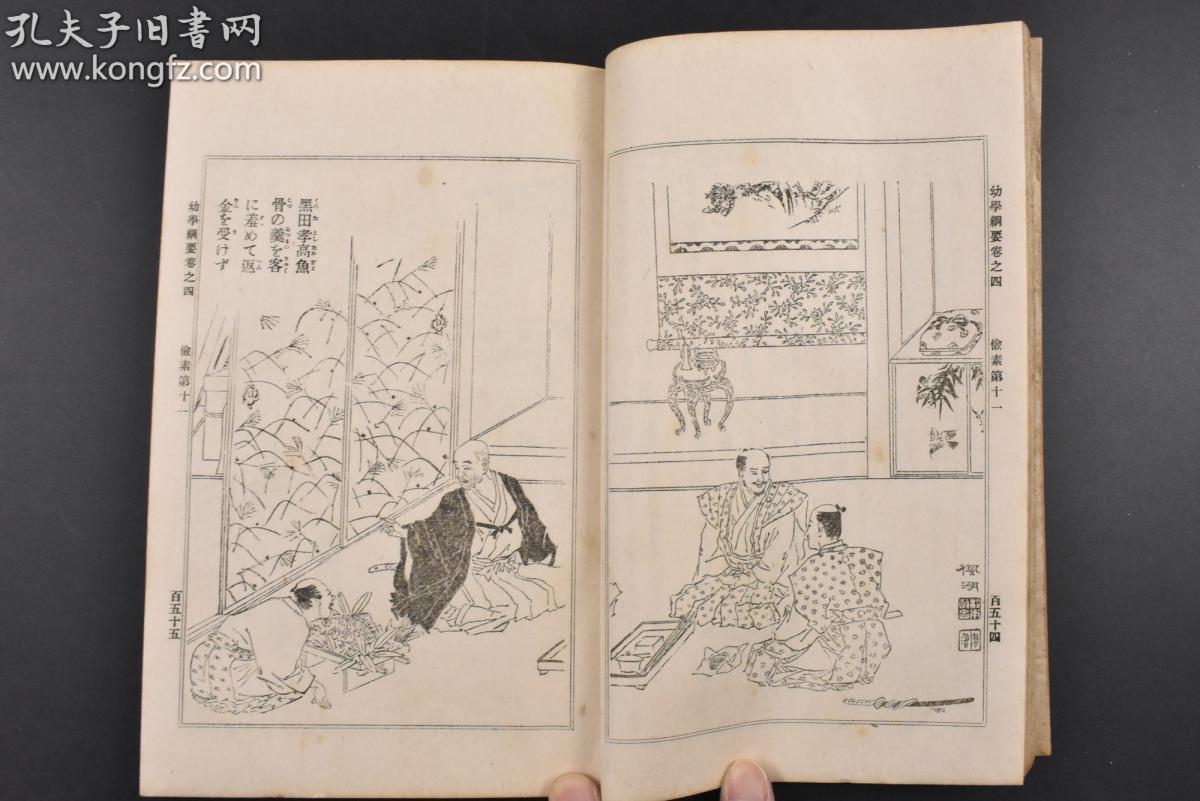 孔夫子旧书网
www.kongfz.com
幼學綱要卷之四 儉素第十一 百五十四
楓湖
黑田孝高魚
骨の羹を客
に羞めて返
金を受けず
幼學綱要卷之四 儉素第十一 百五十五